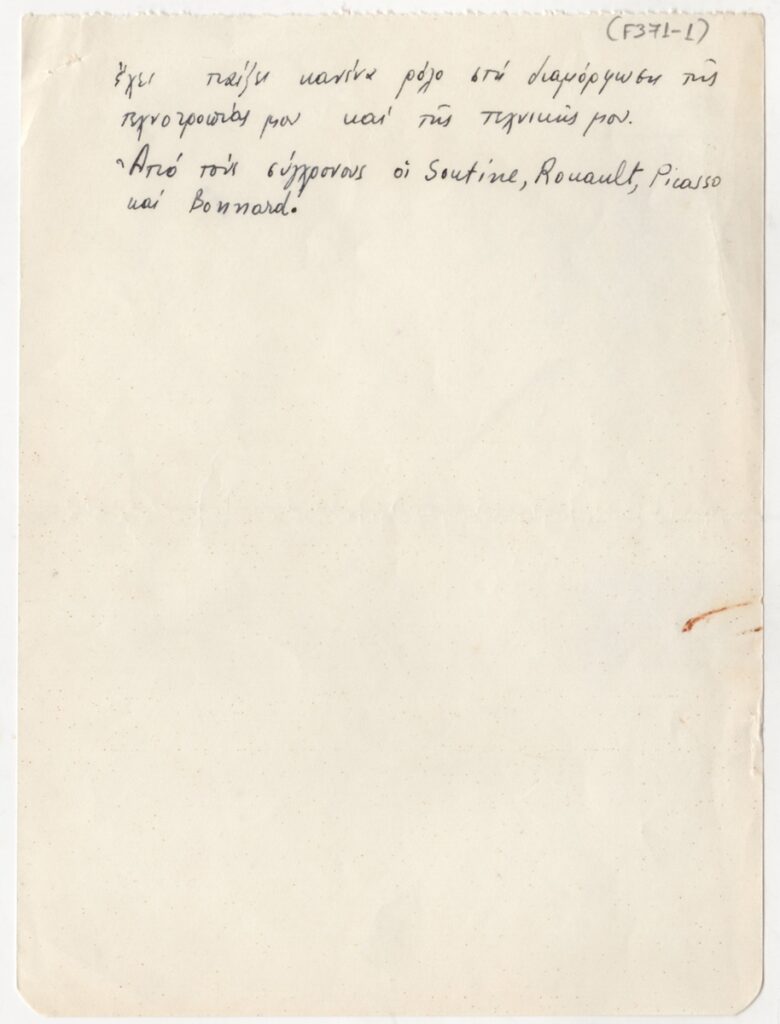 (F371-1)
ἔχει παίξει κανένα ρόλο στή διαμόρφωση τῆς
τεχνοτροπίας μου καί τῆς τεχνικῆς μου.
Ἀπό τούς σύγχρονους οἱ Soutine, Rouault, Picasso
καί Bonnard.